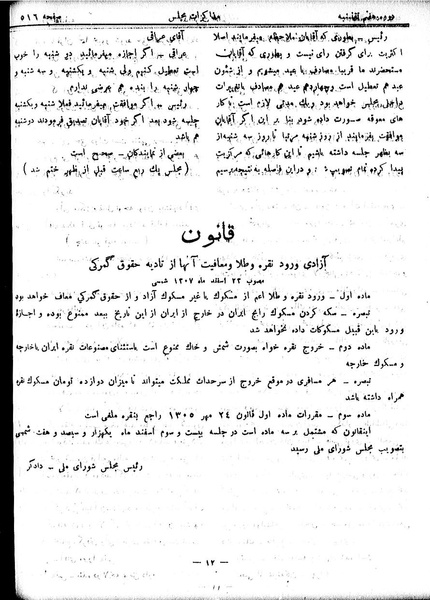 دوره هفتم تقنینیه
مذاکرات مجلس
صفحه ۵۱۶
رئیس ـ بطوری که آقایان ملاحظه میفرمایند اصلا
اکثریت برای گرفتن رای نیست و بطوری که آقایان
مستحضرند ما قریباً مصادف با عید میشویم و از شئون
عید هم تعطیل است وچهاردهم عید هم مصادف با
داخلی مجلس خواهد بود ویک مدتی لازم است تا کار
های معوقه صورت داده شود بنا بر این اگر آقایان
موافقت بفرمایند از روز شنبه مرتبا تا روز سه شنبه از
سه بظهر جلسه داشته باشیم تا این کارهائی که مرکزیت
پیدا کرده تمام تصویب و دراین فاصله به نتیجه برسیم
آقای عراقی
عراقی ـ اگر اجازه میفرمائید دو شنبه را خوب
است تعطیل کنیم ولی شنبه و یکشنبه و سه شنبه و
چهار شنبه را بنده هم عرضی ندارم
رئیس ـ اگر موافقت میفرمائید فعلا شنبه ویکشنبه
جلسه شود بعد اگر خود آقایان تصدیق فرمودند دوشنبه
هم باشد
بعضی از نمایندگان ـ صحیح است
(مجلس یک ربع ساعت قبل از ظهر ختم شد)
قانون
آزادی ورود نقره وطلا ومعافیت آنها از تادیه حقوق گمرکی
مصوب ۲۳ اسفند ماه ۱۳۰۷ شمسی
ماده اول ـ ورود نقره و طلا اعم از مسکوک یا غیر مسکوک آزاد و از حقوق گمرکی معاف خواهد بود
تبصره ـ سکه کردن مسکوک رایج ایران در خارج از ایران از این تاریخ ببعد ممنوع بوده و اجازهٔ
ورود باین قبیل مسکوکات داده نخواهد شد
ماده دوم ـ خروج نقره خواه بصورت شمش و خاک ممنوع است باستثنای مصنوعات نقره ایران یاخارجه
و مسکوک خارجه
تبصره ـ هر مسافری در موقع خروج از سرحدات مملکت میتواند تا میزان دوازده تومان مسکوک نقره
همراه داشته باشد
ماده سوم ـ مقررات ماده اول قانون ۲۴ مهر ۱۳۰۵ راجع بنقره ملغی است
اینقانون که مشتمل بر سه ماده است در جلسه بیست و سوم اسفند ماه یکهزار و سیصد و هفت شمسی
بتصویب مجلس شورای ملی رسید
رئیس مجلس شورای ملی ـ دادگر
ـ ۱۲ ـ